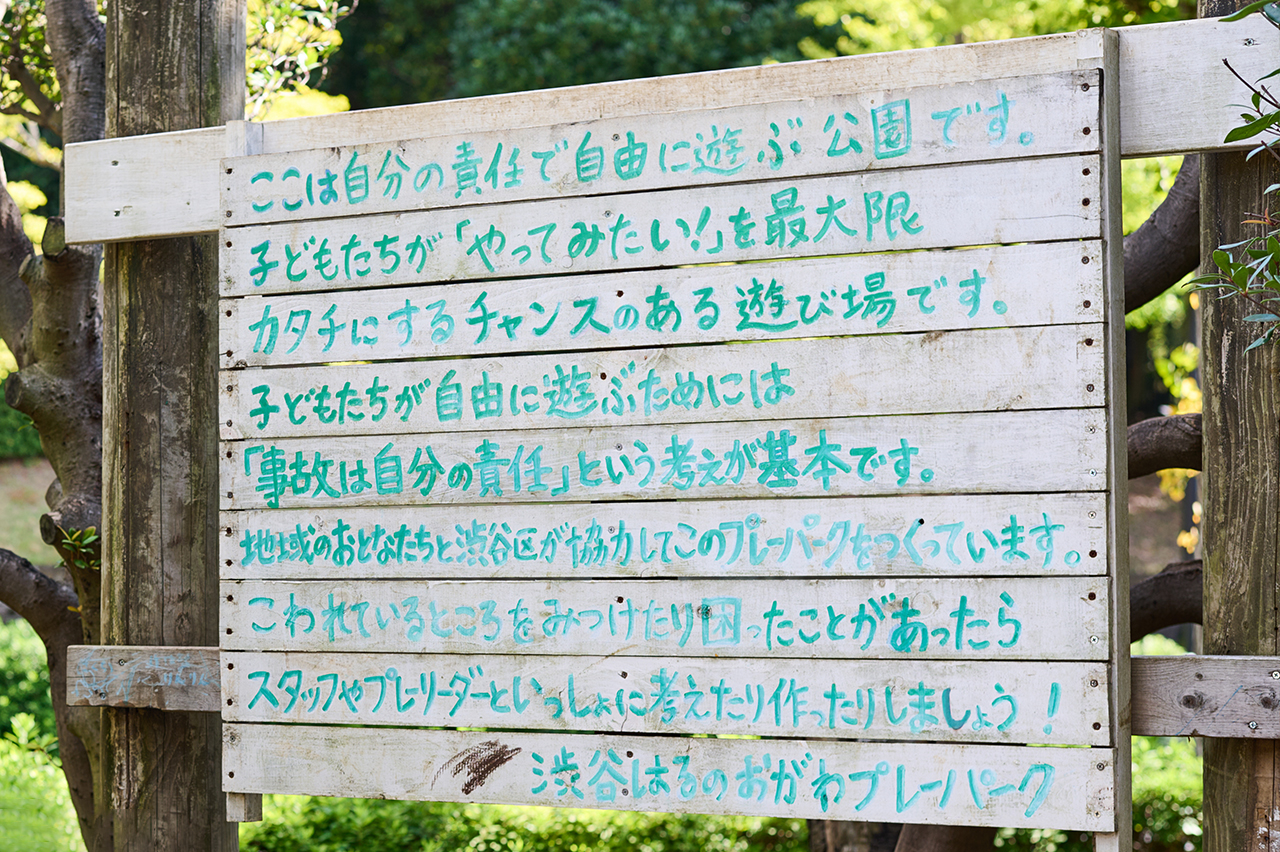 ここは自分の責任で自由に遊ぶ公園です。
子どもたちが「やってみたい!」を最大限
カタチにするチャンスのある遊び場です。
子どもたちが自由に遊ぶためには
「事故は自分の責任」という考えが基本です。
地域のおとなたちと渋谷区が協力してこのプレーパークをつくっています。
こわれているところをみつけたり困ったことがあったら
スタッフやプレーリーダーといっしょに考えたり作ったりしましょう!
渋谷はるのおがわプレーパーク